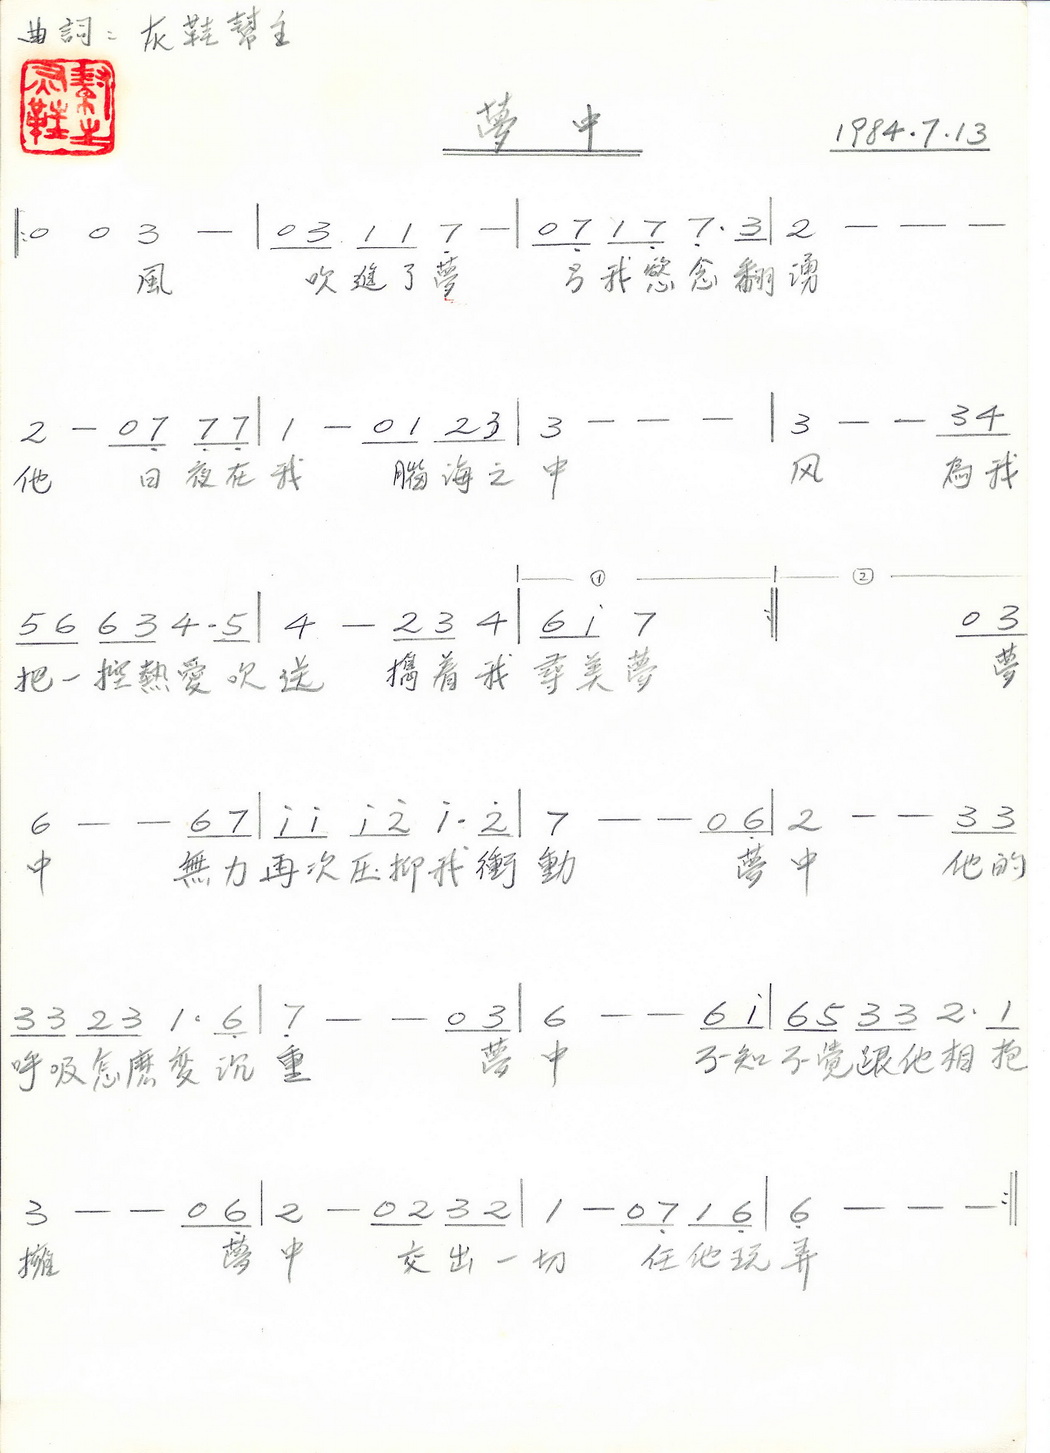 曲詞：灰鞋幫主
灰鞋幫主
夢 中
1984.7.13
‖: 0 0 3 — | 03 11 7 — | 07 17 7·3 | 2 — — —
風 吹進了夢 我慾念翻湧
2 — 07 77 | 1 — 01 23 | 3 — — — | 3 — — 34
他 日夜在我 腦海之中 风 為我
① ②
56 63 4·5 | 4 — 23 4 | 61 7 :‖ 03
把一控熱愛吹送 擕着我尋美夢 夢
6 — — 67 | 11 12 1·2 | 7 — — 06 | 2 — — 33
中 無力再次压抑我衝動 夢中 他的
33 23 1·6 | 7 — — 03 | 6 — — 61 | 65 33 2·1
呼吸怎麽变沉重 夢中 不知不覺跟他相抱
3 — — 06 | 2 — 02 32 | 1 — 07 16 | 6 — — — :‖
擁 夢中 交出一切 任他玩弄